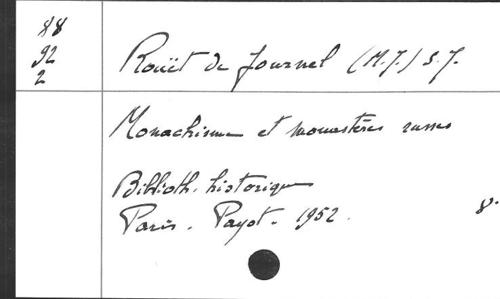 88
92
2
Rouët de Journel (M.J.) S.J.
Monachisme et monastères russes
Biblioth. historique
Paris. Payot. 1952.
8°